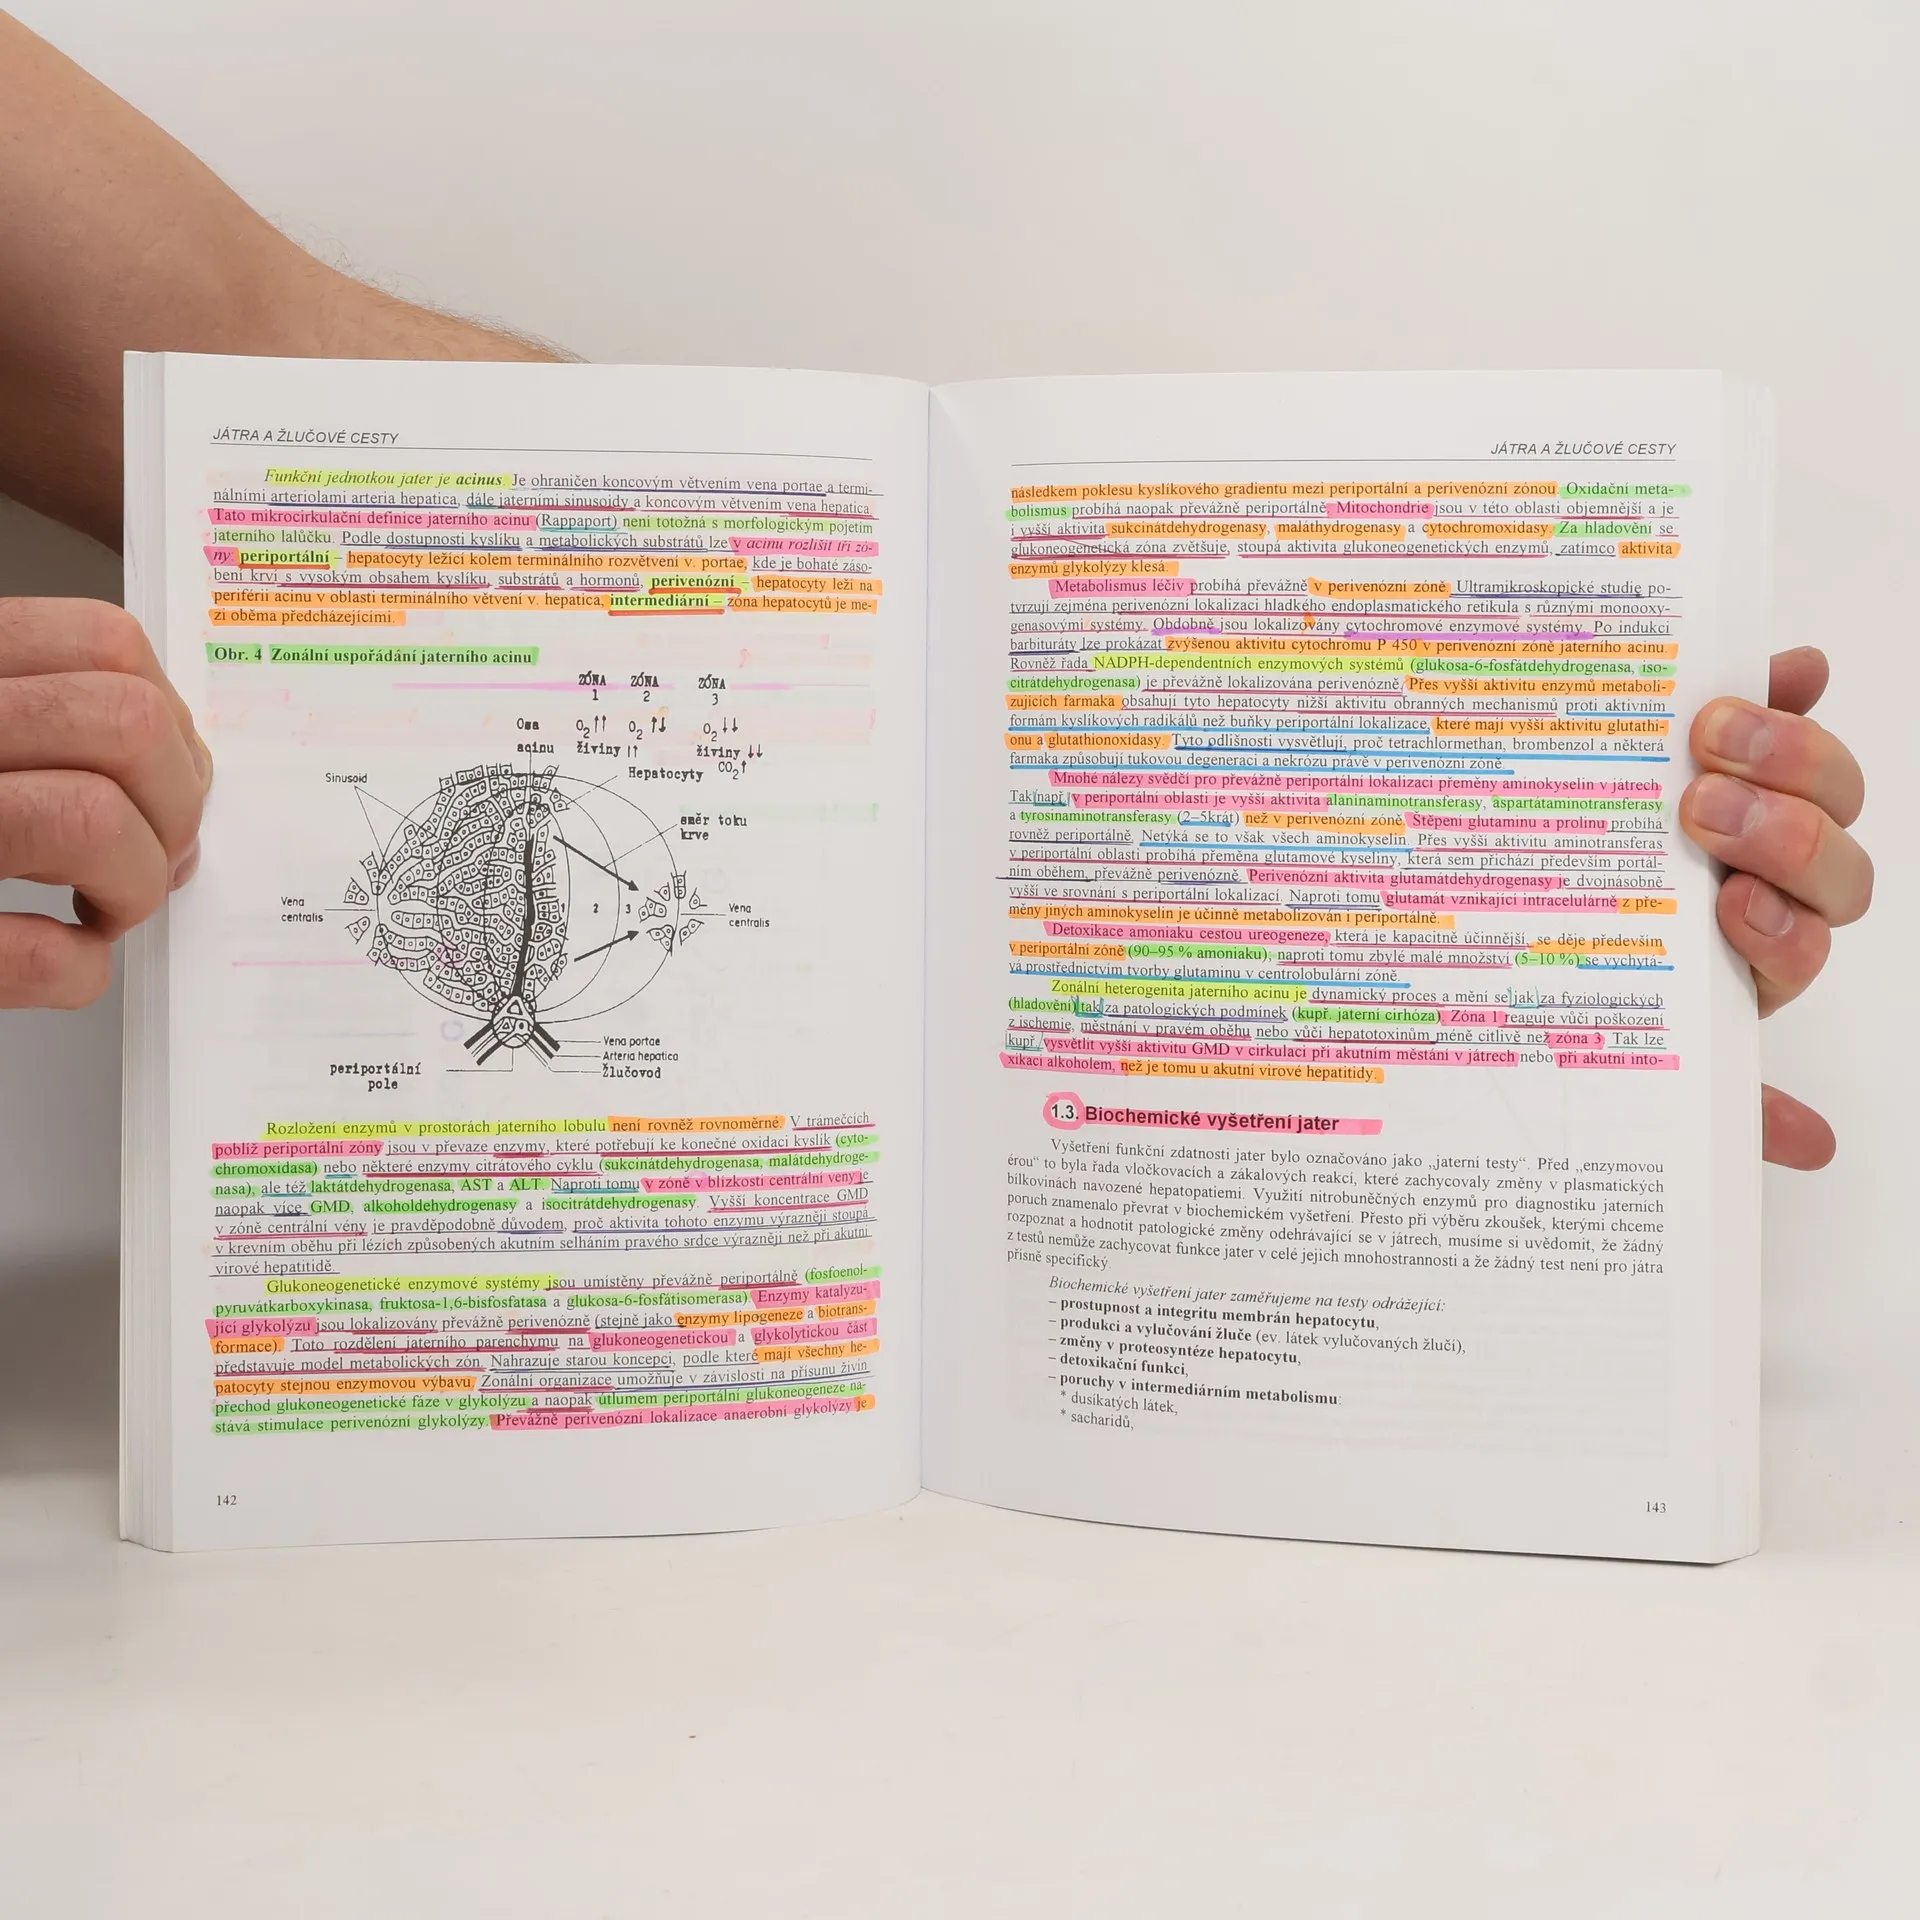 JÁTRA A ŽLUČOVÉ CESTY
Funkční jednotkou jater je acinus. Je ohraničen koncovým větvením vena portae a termi-
nálními arteriolami arteria hepatica, dále jaterními sinusoidy a koncovým větvením vena hepatica.
Tato mikrocirkulační definice jaterního acinu (Rappaport) není totožná s morfologickým pojetím
jaterního lalůčku. Podle dostupnosti kyslíku a metabolických substrátů lze v acinu rozlišit tři zó-
ny: periportální – hepatocyty ležící kolem terminálního rozvětvení v. portae, kde je bohaté záso-
bení krví s vysokým obsahem kyslíku, substrátů a hormonů, perivenózní – hepatocyty leží na
periférii acinu v oblasti terminálního větvení v. hepatica, intermediární – zóna hepatocytů je me-
zi oběma předcházejícími.
Obr. 4 Zonální uspořádání jaterního acinu
ZÓNA ZÓNA ZÓNA
1 2 3
Osa O2↑↑ O2↑↓ O2↓↓
acinu živiny↑↑ živiny↓↓
CO2↑
Sinusoid
Hepatocyty
směr toku
krve
Vena
centralis
1 2 3
Vena
centralis
Vena portae
Arteria hepatica
Žlučovod
periportální
pole
Rozložení enzymů v prostorách jaterního lobulu není rovněž rovnoměrné. V trámečcích
poblíž periportální zóny jsou v převaze enzymy, které potřebují ke konečné oxidaci kyslík (cyto-
chromoxidasa) nebo některé enzymy citrátového cyklu (sukcinátdehydrogenasa, malátdehydroge-
nasa), ale též laktátdehydrogenasa, AST a ALT. Naproti tomu v zóně v blízkosti centrální veny je
naopak více GMD, alkoholdehydrogenasy a isocitrátdehydrogenasy. Vyšší koncentrace GMD
v zóně centrální vény je pravděpodobně důvodem, proč aktivita tohoto enzymu výrazněji stoupá
v krevním oběhu při lézích způsobených akutním selháním pravého srdce výrazněji než při akutní
virové hepatitidě.
Glukoneogenetické enzymové systémy jsou umístěny převážně periportálně (fosfoenol-
pyruvátkarboxykinasa, fruktosa-1,6-bisfosfatasa a glukosa-6-fosfátisomerasa). Enzymy katalyzu-
jící glykolýzu jsou lokalizovány převážně perivenózně (stejně jako enzymy lipogeneze a biotrans-
formace). Toto rozdělení jaterního parenchymu na glukoneogenetickou a glykolytickou část
představuje model metabolických zón. Nahrazuje starou koncepci, podle které mají všechny he-
patocyty stejnou enzymovou výbavu. Zonální organizace umožňuje v závislosti na přísunu živin
přechod glukoneogenetické fáze v glykolýzu a naopak útlumem periportální glukoneogeneze na-
stává stimulace perivenózní glykolýzy. Převážně perivenózní lokalizace anaerobní glykolýzy je
142
JÁTRA A ŽLUČOVÉ CESTY
následkem poklesu kyslíkového gradientu mezi periportální a perivenózní zónou. Oxidační meta-
bolismus probíhá naopak převážně periportálně. Mitochondrie jsou v této oblasti objemnější a je
i vyšší aktivita sukcinátdehydrogenasy, maláthydrogenasy a cytochromoxidasy. Za hladovění se
glukoneogenetická zóna zvětšuje, stoupá aktivita glukoneogenetických enzymů, zatímco aktivita
enzymů glykolýzy klesá.
Metabolismus léčiv probíhá převážně v perivenózní zóně. Ultramikroskopické studie po-
tvrzují zejména perivenózní lokalizaci hladkého endoplasmatického retikula s různými monooxy-
genasovými systémy. Obdobně jsou lokalizovány cytochromové enzymové systémy. Po indukci
barbituráty lze prokázat zvýšenou aktivitu cytochromu P 450 v perivenózní zóně jaterního acinu.
Rovněž řada NADPH-dependentních enzymových systémů (glukosa-6-fosfátdehydrogenasa, iso-
citrátdehydrogenasa) je převážně lokalizována perivenózně. Přes vyšší aktivitu enzymů metaboli-
zujících farmaka obsahují tyto hepatocyty nižší aktivitu obranných mechanismů proti aktivním
formám kyslíkových radikálů než buňky periportální lokalizace, které mají vyšší aktivitu glutathi-
onu a glutathionoxidasy. Tyto odlišnosti vysvětlují, proč tetrachlormethan, brombenzol a některá
farmaka způsobují tukovou degeneraci a nekrózu právě v perivenózní zóně.
Mnohé nálezy svědčí pro převážně periportální lokalizaci přeměny aminokyselin v játrech.
Tak např. v periportální oblasti je vyšší aktivita alaninaminotransferasy, aspartátaminotransferasy
a tyrosinaminotransferasy (2–5krát) než v perivenózní zóně. Štěpení glutaminu a prolinu probíhá
rovněž periportálně. Netýká se to však všech aminokyselin. Přes vyšší aktivitu aminotransferas
v periportální oblasti probíhá přeměna glutamové kyseliny, která sem přichází především portál-
ním oběhem, převážně perivenózně. Perivenózní aktivita glutamátdehydrogenasy je dvojnásobně
vyšší ve srovnání s periportální lokalizací. Naproti tomu glutamát vznikající intracelulárně z pře-
měny jiných aminokyselin je účinně metabolizován i periportálně.
Detoxikace amoniaku cestou ureogeneze, která je kapacitně účinnější, se děje především
v periportální zóně (90–95 % amoniaku), naproti tomu zbylé malé množství (5–10 %) se vychytá-
vá prostřednictvím tvorby glutaminu v centrolobulární zóně.
Zonální heterogenita jaterního acinu je dynamický proces a mění se jak za fyziologických
(hladovění) tak za patologických podmínek (kupř. jaterní cirhóza). Zóna 1 reaguje vůči poškození
z ischemie, městnání v pravém oběhu nebo vůči hepatotoxinům méně citlivě než zóna 3. Tak lze
kupř. vysvětlit vyšší aktivitu GMD v cirkulaci při akutním městání v játrech nebo při akutní into-
xikaci alkoholem, než je tomu u akutní virové hepatitidy.
1.3. Biochemické vyšetření jater
Vyšetření funkční zdatnosti jater bylo označováno jako „jaterní testy“. Před „enzymovou
érou“ to byla řada vločkovacích a zákalových reakcí, které zachycovaly změny v plasmatických
bílkovinách navozené hepatopatiemi. Využití nitrobuněčných enzymů pro diagnostiku jaterních
poruch znamenalo převrat v biochemickém vyšetření. Přesto při výběru zkoušek, kterými chceme
rozpoznat a hodnotit patologické změny odehrávající se v játrech, musíme si uvědomit, že žádný
z testů nemůže zachycovat funkce jater v celé jejich mnohostrannosti a že žádný test není pro játra
přísně specifický.
Biochemické vyšetření jater zaměřujeme na testy odrážející:
– prostupnost a integritu membrán hepatocytu,
– produkci a vylučování žluče (ev. látek vylučovaných žlučí),
– změny v proteosyntéze hepatocytu,
– detoxikační funkci,
– poruchy v intermediárním metabolismu:
* dusíkatých látek,
* sacharidů,
143